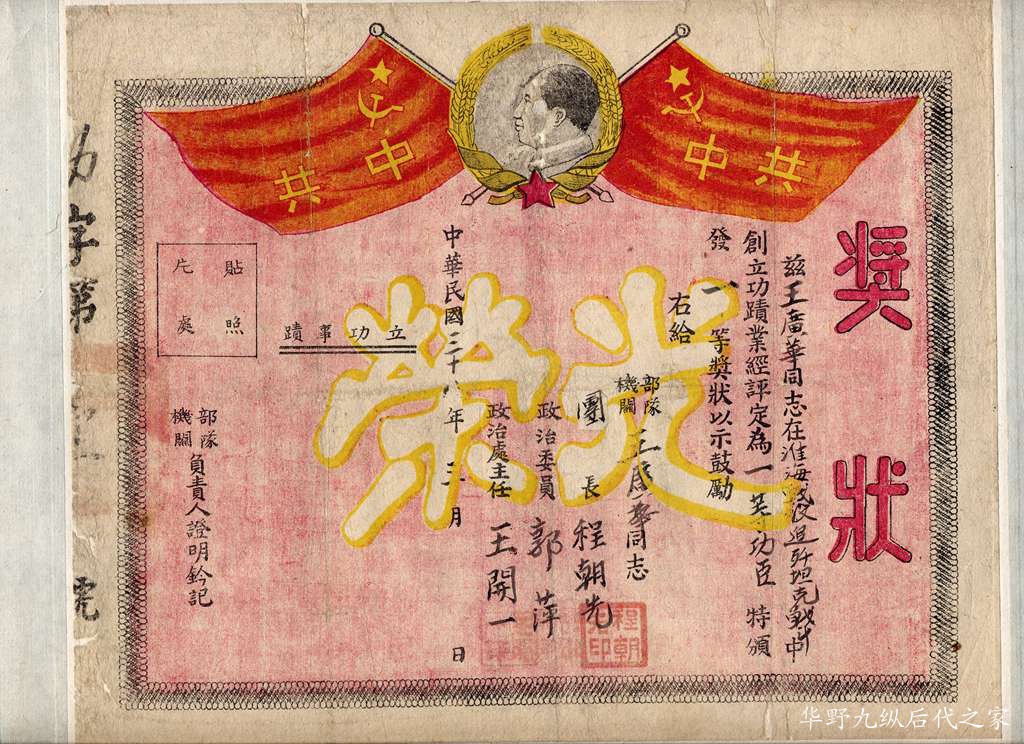 共中
中共
獎狀
茲王廣華同志在淮海戰役追歼坦克戰鬥中
創立功蹟業經評定為一等功臣特頒
發一等獎狀以示鼓勵
右給
部隊
機關
王廣華同志
團長程朝光
政治委員郭萍
政治處主任王開一
中華民國三十八年三月日
光榮
立功事蹟
貼照
片處
部隊
機關
負責人證明鈐記
字第
號
程朝
光印
华野九纵后代之家